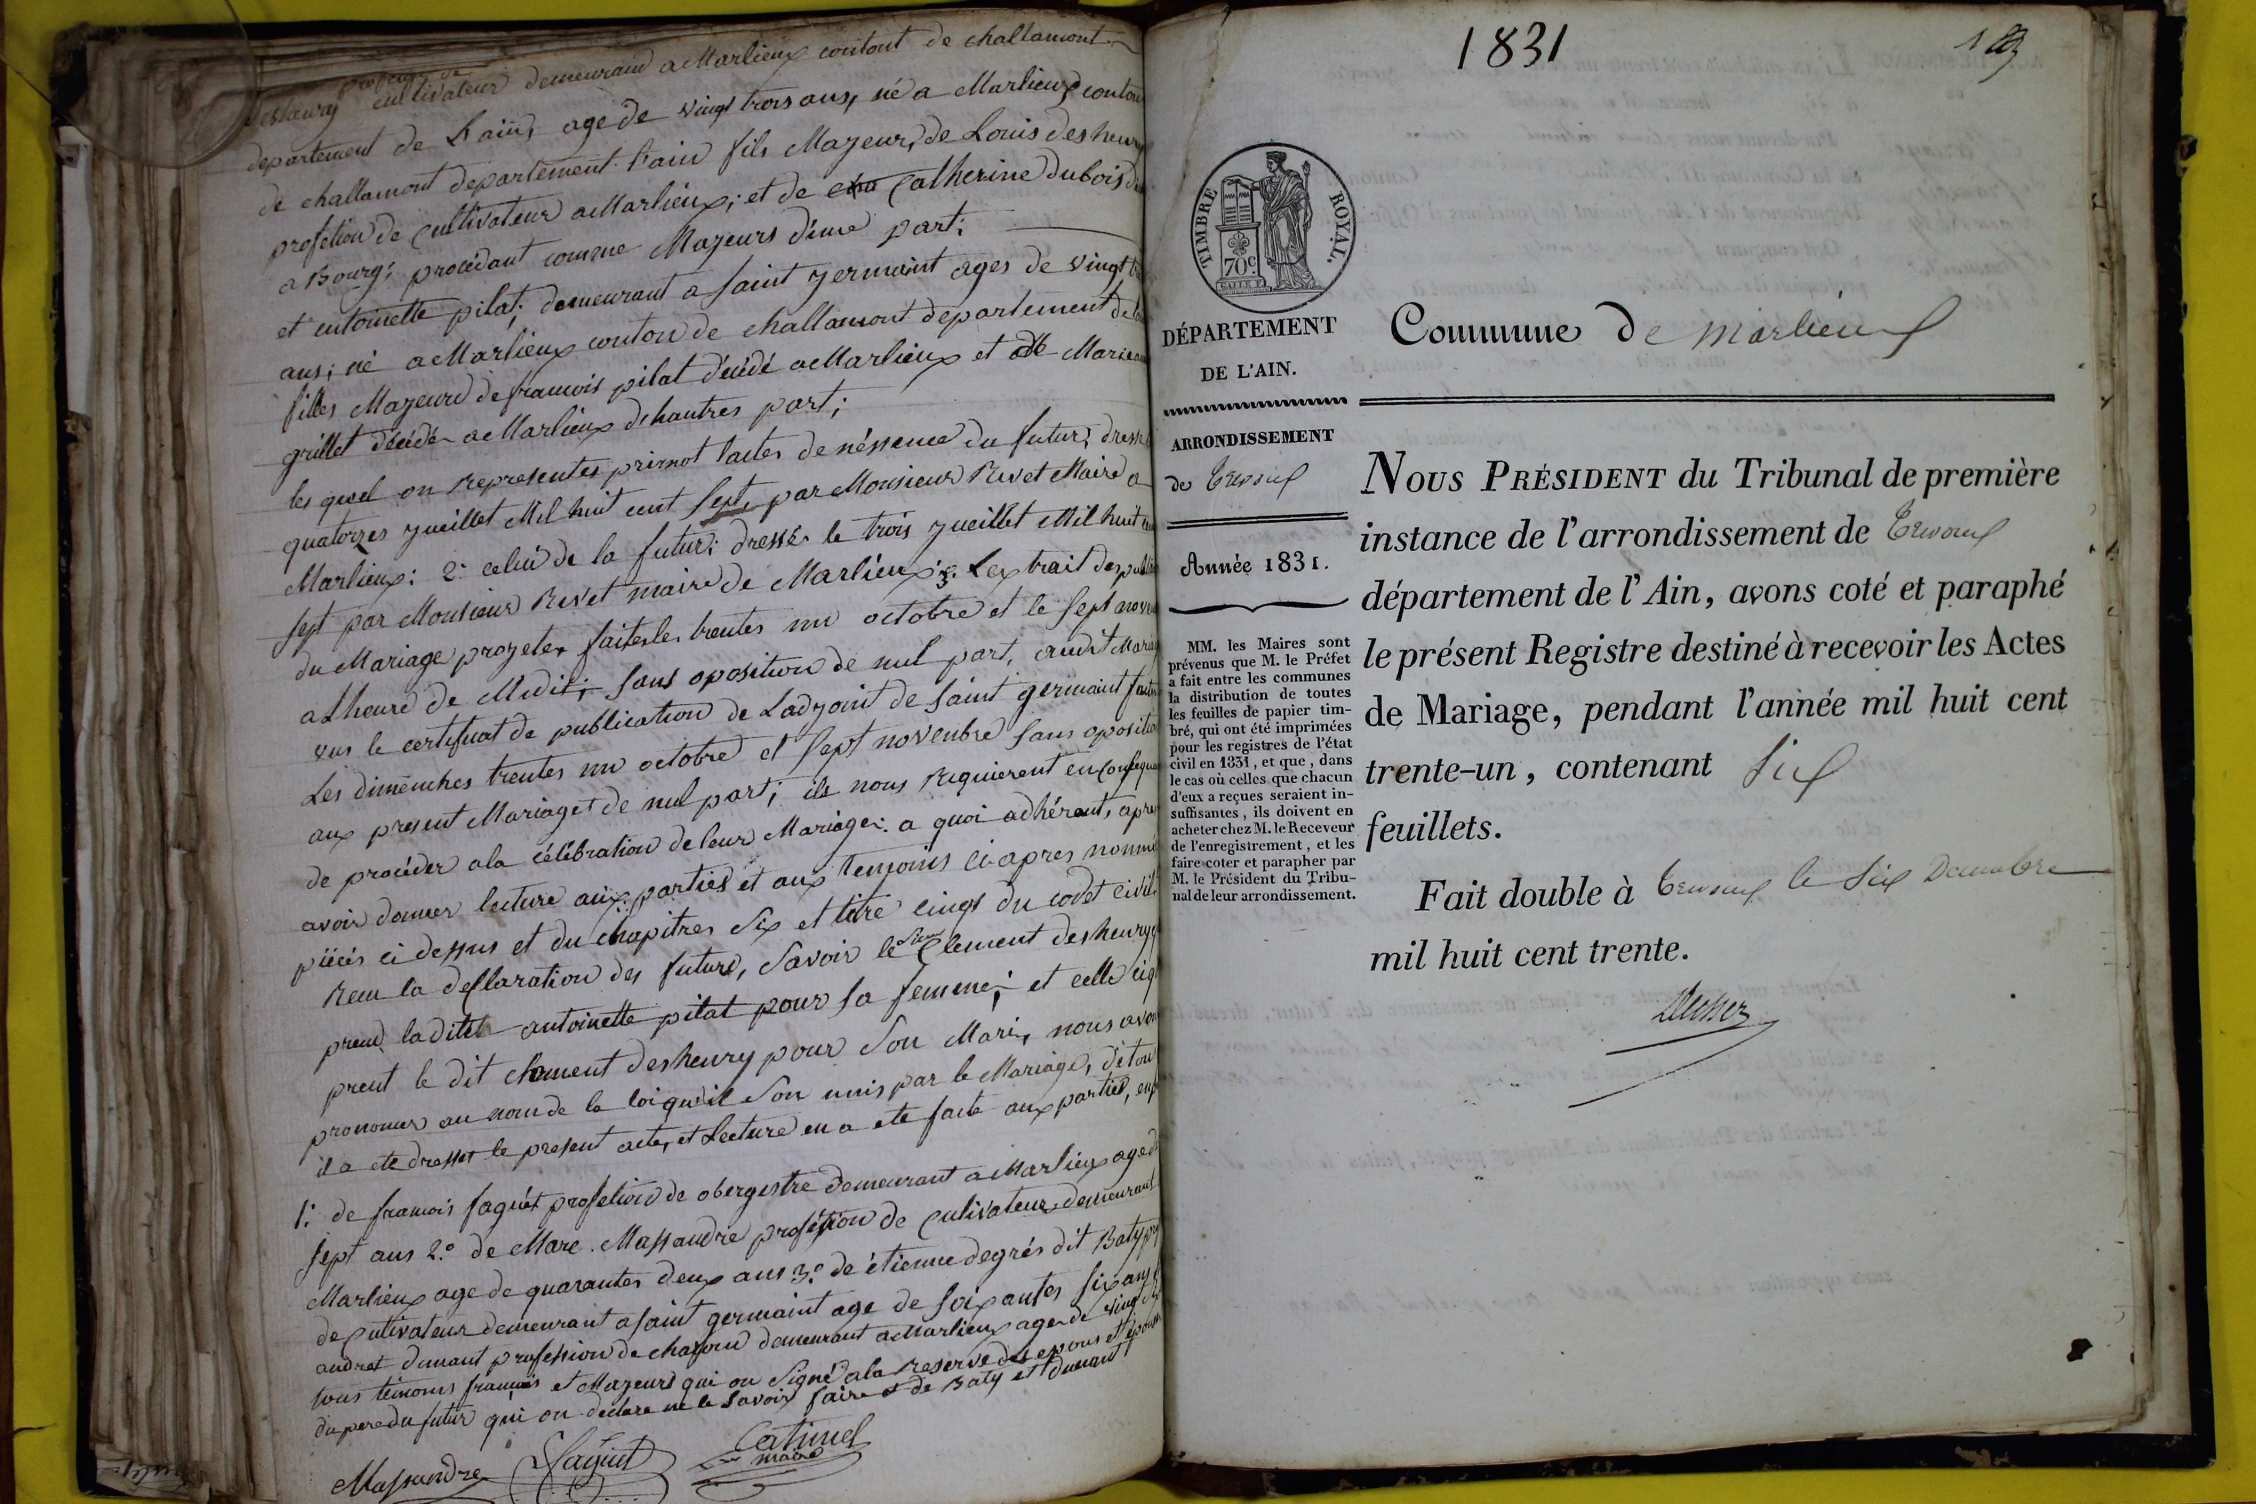 profession de
desheury cultivateur demeurand a Marlieux contont de challamont
departement de Lain, age de vingt trois ans, né a Marlieux contont
de challamont departement l'ain fils Mayeur, de Louis desheury
profetion de Cultivateur a Marlieux; et de Catherine dubois
a Bourg; procédant comme Mayeurs d'une part;
et entoinette pilat; demeurant a saint germaint ages de vingt
ans; né a Marlieux conton de challamont departement de
filles Mayeure de francois pilat décédé a Marlieux et de Marie
grillet décédé a Marlieux d'hautres part;
les quel on representes primot lactes de néssence du futur; dressé
quatorzes jueillet Mil huit cent sept, par Monsieur Revet Maire a
Marlieux: 2: celui de la futur; dressér le trois jueillet Mil huit
sept par Monsieur Revet maire de Marlieux; 3: Lextrait des
du Mariage proyeter faites les trentes un octobre et le sept
a Lheure de Midit; sans oposition de nul part, audit
vus le certificat de publication de Ladyoint de saint germaint
Les dimenches trentes un octobre et sept novembre sans oposition
aux present Mariaget de nul part; ils nous Requierent en
de procéder a la célébration de leur Mariage: a quoi adhérant, apres
avoir donner lecture aux parties et aux temoins ci apres
piéces ci dessus et du chapitres six et titre cinqs du codet civil
Recu la desclaration des future, savoir le sieur Clement desheury
prend la dite antoinette pilat pour sa femme; et celle ci
prent le dit Clement desheury pour son Mari, nous
prononcer au nom de la loi qu'il son unis par le Mariage, de tout
il a ete dresser le present acte, et Lecture en a ete faite aux parties, en
1: de francois faguet profetion de obergistre demeurant a Marlieux age de
sept ans 2.º de Marc Massandre profétion de Cultivateur demeurant
Marlieux age de quarantes deux ans 3.º de étienne degrés dit Baty
de Cultivateur demeurant a saint germaint age de soixantes six ans
andret dunant profession de demeurant a Marlieux age de vingt
tous témoins français et Mayeurs qui on signé a la reserve des epoux et
du pere du futur qui on declare ne le savoir faire et de Baty et dunant
Massandre Faguet Catinel
maire
1831
TIMBRE ROYAL.
70c
DÉPARTEMENT
DE L'AIN.
Commune De Marlieux
ARRONDISSEMENT
de Trevoux
Année 1831.
MM. les Maires sont
prévenus que M. le Préfet
a fait entre les communes
la distribution de toutes
les feuilles de papier tim-
bré, qui ont été imprimées
pour les registres de l'état
civil en 1831, et que, dans
le cas où celles que chacun
d'eux a reçues seraient in-
suffisantes, ils doivent en
acheter chez M. le Receveur
de l'enregistrement, et les
faire coter et parapher par
M. le Président du Tribu-
nal de leur arrondissement.
NOUS PRÉSIDENT du Tribunal de première
instance de l'arrondissement de Trevoux
département de l'Ain, avons coté et paraphé
le présent Registre destiné à recevoir les Actes
de Mariage, pendant l'année mil huit cent
trente-un, contenant Six
feuillets.
Fait double à Trevoux le Six Decembre
mil huit cent trente.